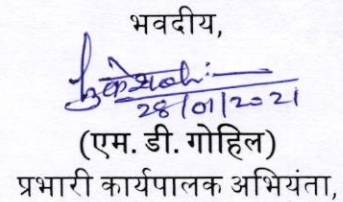 भवदीय,
28/01/2021
(एम. डी. गोहिल)
प्रभारी कार्यपालक अभियंता,